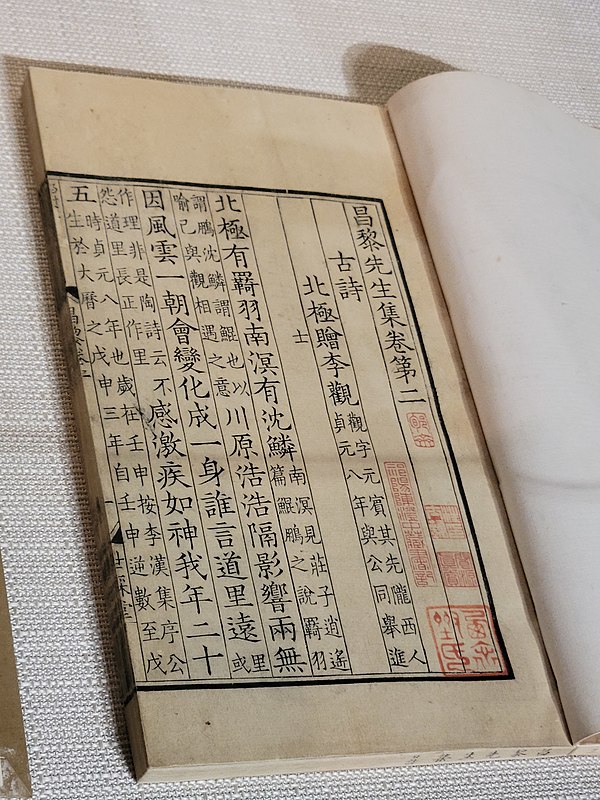 昌黎先生集卷第二
古詩
北極贈李觀
觀字元賓其先隴西人
貞元八年與公同舉進
士
北極有羇羽南溟有沈鱗
南溟見莊子逍遙
篇鯤鵬之說羇羽
謂鵬沈鱗謂鯤也以
喻己與觀相遇之意
川原浩浩隔影響兩無
因風雲一朝會變化成一身誰言道里遠
里
或
作理非是陶詩云不
怨道里長正作里
感激疾如神我年二十
五
時貞元八年也歲在壬申按李漢集序公
生於大曆之戊申三年自壬申逆數至戊
昌黎卷二
世綵堂